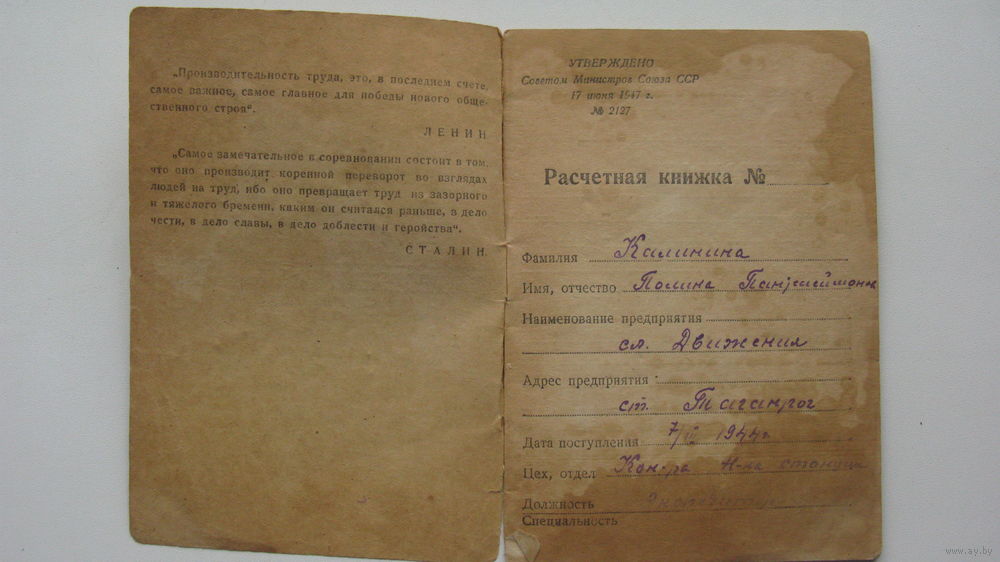 „Производительность труда, это, в последнем счете,
самое важное, самое главное для победы нового обще-
ственного строя“.
ЛЕНИН.
„Самое замечательное в соревновании состоит в том,
что оно производит коренной переворот во взглядах
людей на труд, ибо оно превращает труд из зазорного
и тяжелого бремени, каким он считался раньше, в дело
чести, в дело славы, в дело доблести и геройства“.
СТАЛИН.
УТВЕРЖДЕНО
Советом Министров Союза ССР
17 июня 1947 г.
№ 2127
Расчетная книжка №
Фамилия Калинина
Имя, отчество Полина
Наименование предприятия
сл. Движения
Адрес предприятия
ст. Таганрог
Дата поступления 1944г.
Цех, отдел Кон-ра Н-ка станции
Должность
Специальность
www.ay.by